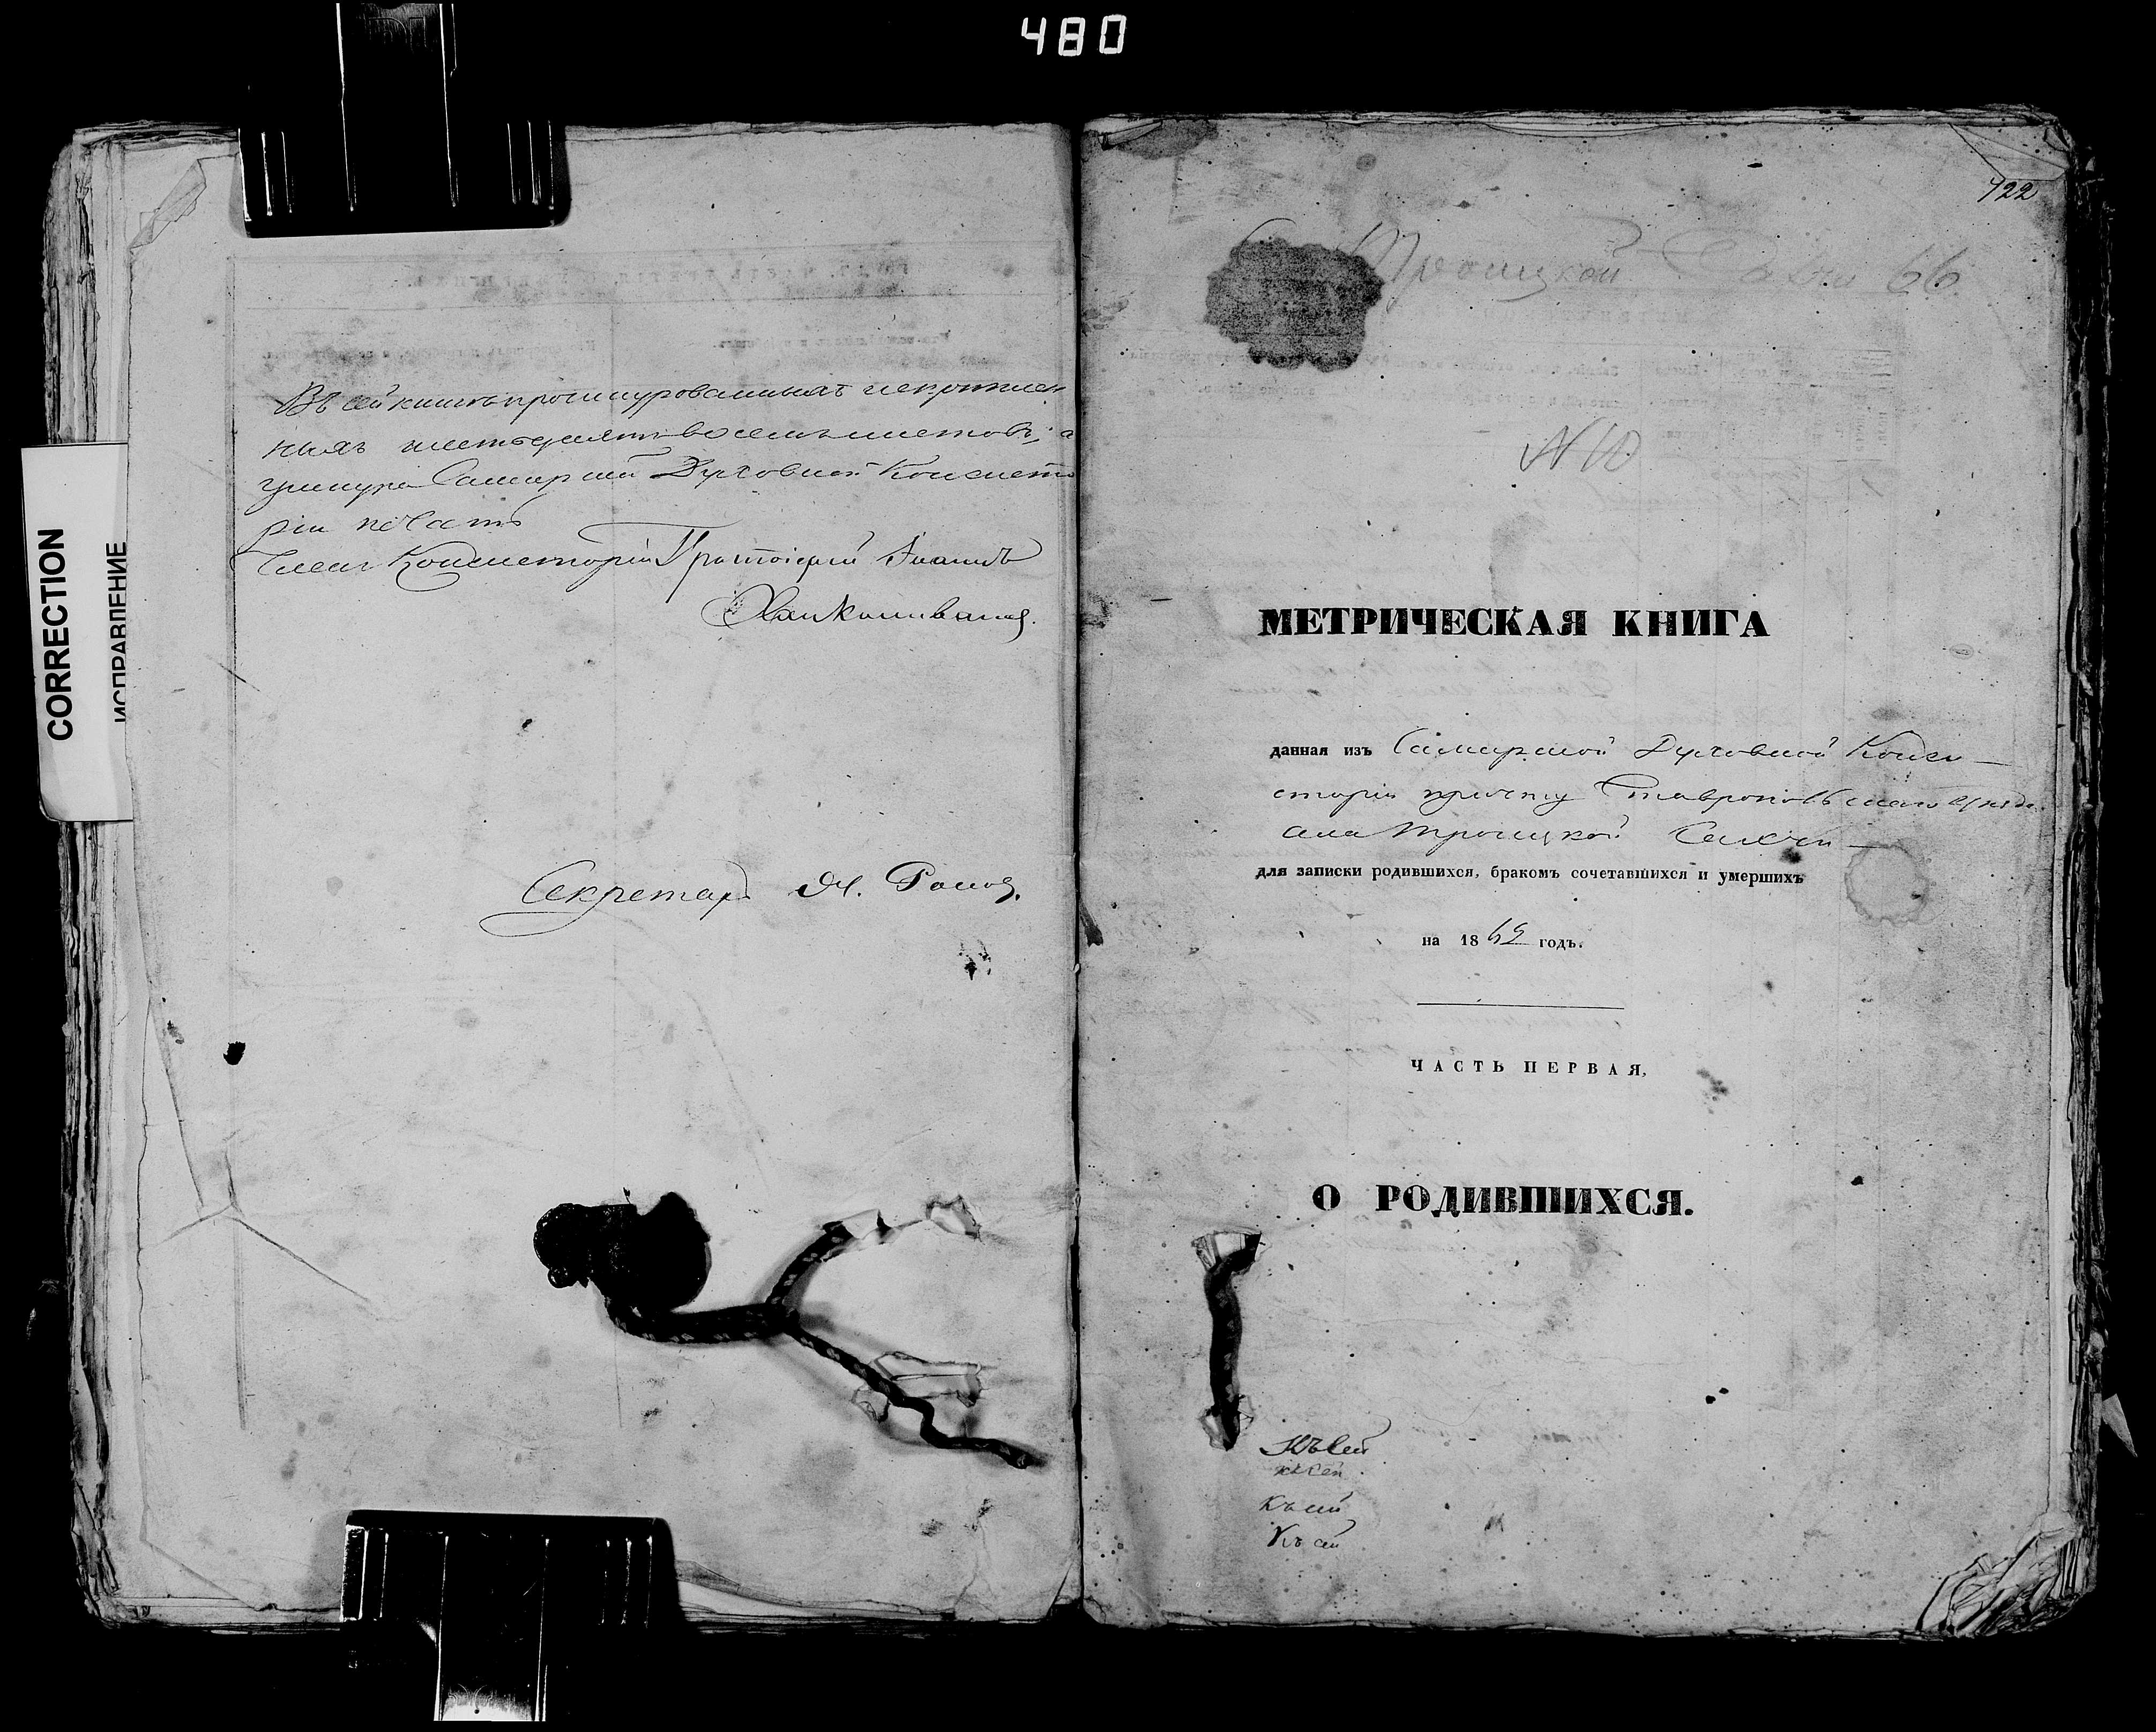 480
CORRECTION
ИСПРАВЛЕНИЕ
Въ сей книгѣ прошнурованныхъ и скрѣплен
ныхъ шестьдесятъ восемь листовъ, а
у шнура Самарской Духовной Консисто
ріи печать
Членъ Консисторіи Протоіерей Іоаннъ
Секретарь
122
Троицкой 66
№ 10
МЕТРИЧЕСКАЯ КНИГА
данная изъ Самарской Духовной Конси—
сторіи причту Ставропольскаго уѣзда
села Троицкой
для записки родившихся, бракомъ сочетавшихся и умершихъ
на 18 годъ.
ЧАСТЬ ПЕРВАЯ,
О РОДИВШИХСЯ.
Къ сей
къ сей
Къ сей
Къ сей